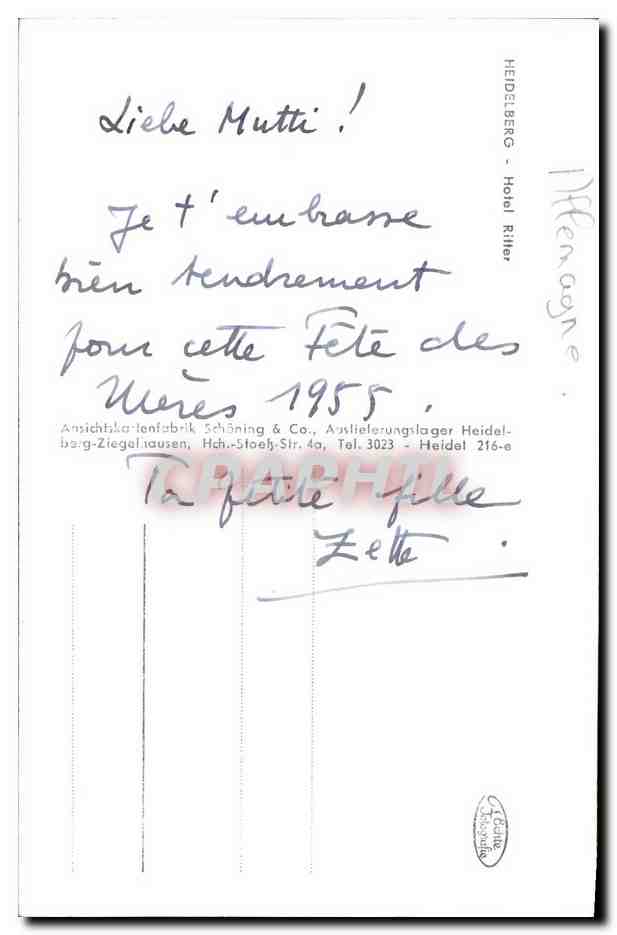 Liebe Mutti !
Je t'embrasse
bien tendrement
pour cette Fête des
Mères 1955.
Ansichtskartenfabrik Schöning & Co., Auslieferungslager Heidel-
berg-Ziegelhausen, Hch.-Stoeß-Str. 4a, Tel. 3023 - Heidel 216-e
CPAPHIL
Ta petite fille
Zette.
HEIDELBERG - Hotel Ritter
Allemagne.
Echte
Fotografie